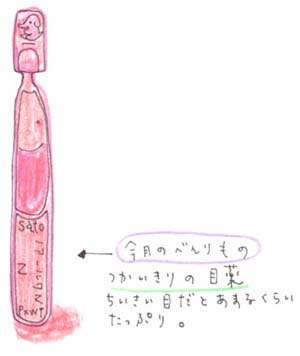 sato
ノアールワン
Z
PxWT
今月のべんりもの
つかいきりの目薬
ちいさい目だとあまるくらい
たっぷり。